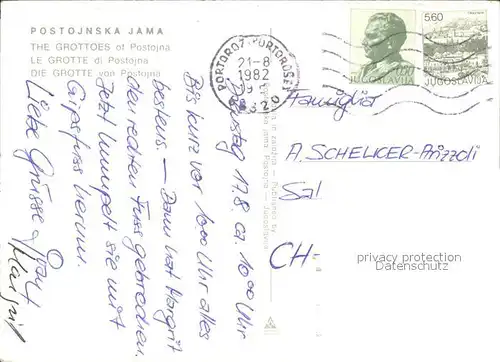 POSTOJNSKA JAMA
THE GROTTOES of Postojna
LE GROTTE di Postojna
DIE GROTTE von Postojna
PORTOROŽ-PORTOROSE
21-8
1982
320
JUGOSLAVIJA
5.60
JUGOSLAVIJA
Dienstag 17.8. ca. 10.00 Uhr
Bis kurz vor 10.00 Uhr alles
bestens. – Dann hat Margrit
den rechten Fuss gebrochen.
Jetzt humpelt sie mit
Gipsfuss herum.
Liebe Grüsse
Margrit
Famiglia
A. SCHELKER-Arizzoli
Sal
CH-
privacy protection
Datenschutz